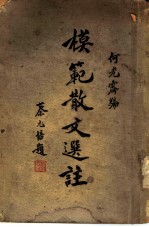 何光霽編
模範散文選註
蔡元培題